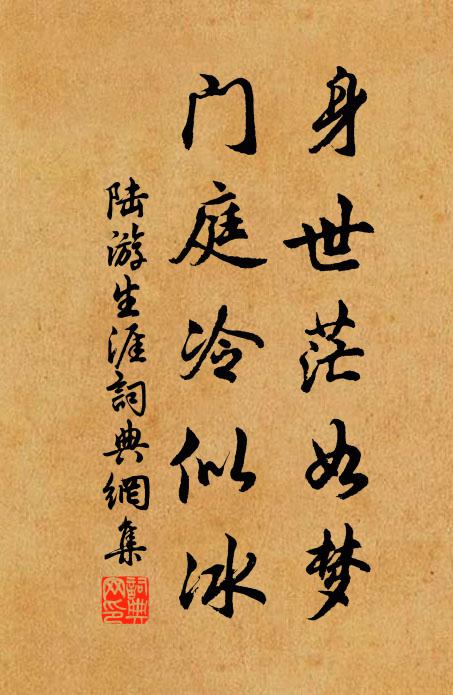 身世茫如梦
门庭冷似冰
陆游生涯詞典網集
詞典
网印